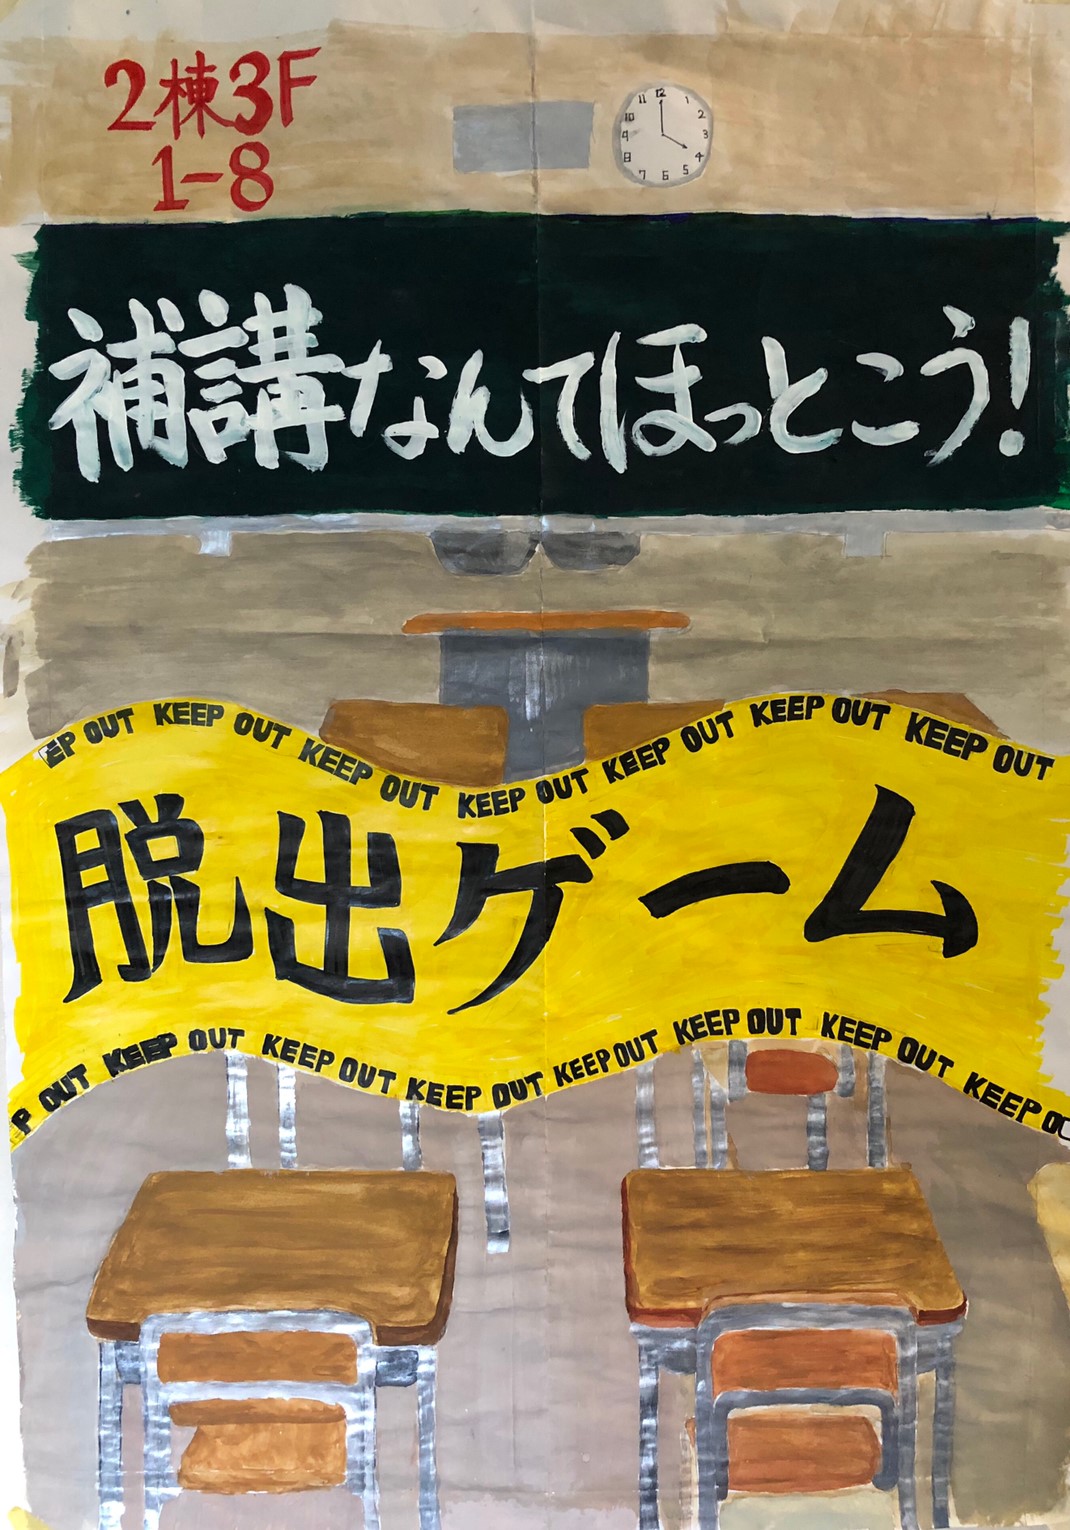 2棟3F
1-8
11 12 1 2 3 4 5 6 7 8 9 10
補講なんてほっとこう!
EP OUT KEEP OUT KEEP OUT KEEP OUT KEEP OUT KEEP OUT KEEP OUT
脱出ゲーム
P OUT KEEP OUT KEEP OUT KEEP OUT KEEP OUT KEEP OUT KEEP OUT KEEP O